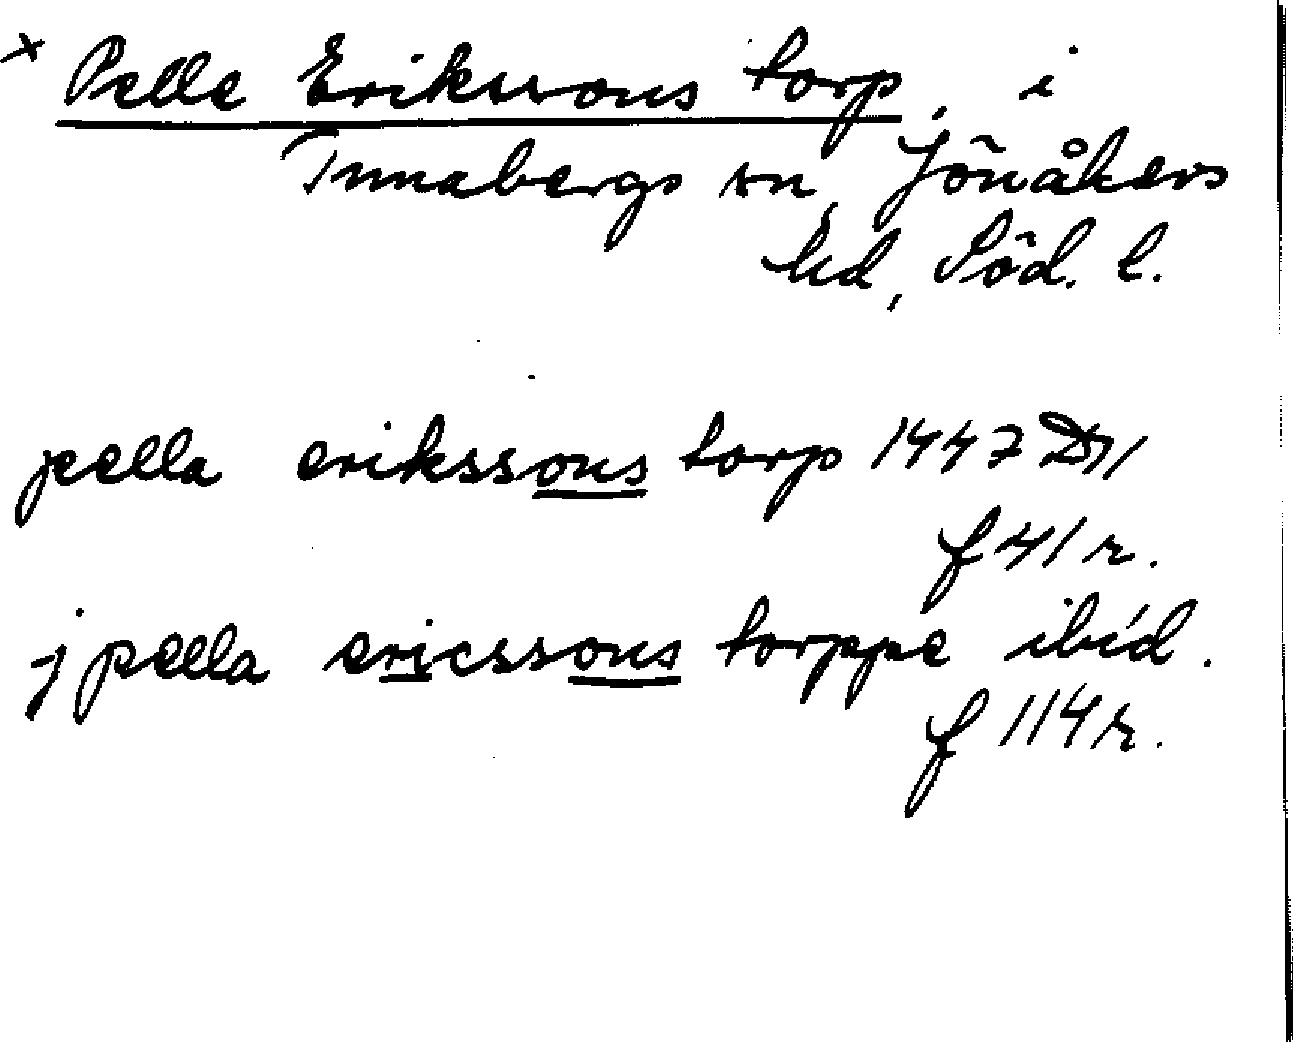 x Pelle Erikssons torp, i
Tunabergs sn, Jönåkers
hd, Söd. l.
pella erikssons torp 1447
f 41 r.
j pella ericssons torppe ibid.
f 114 r.